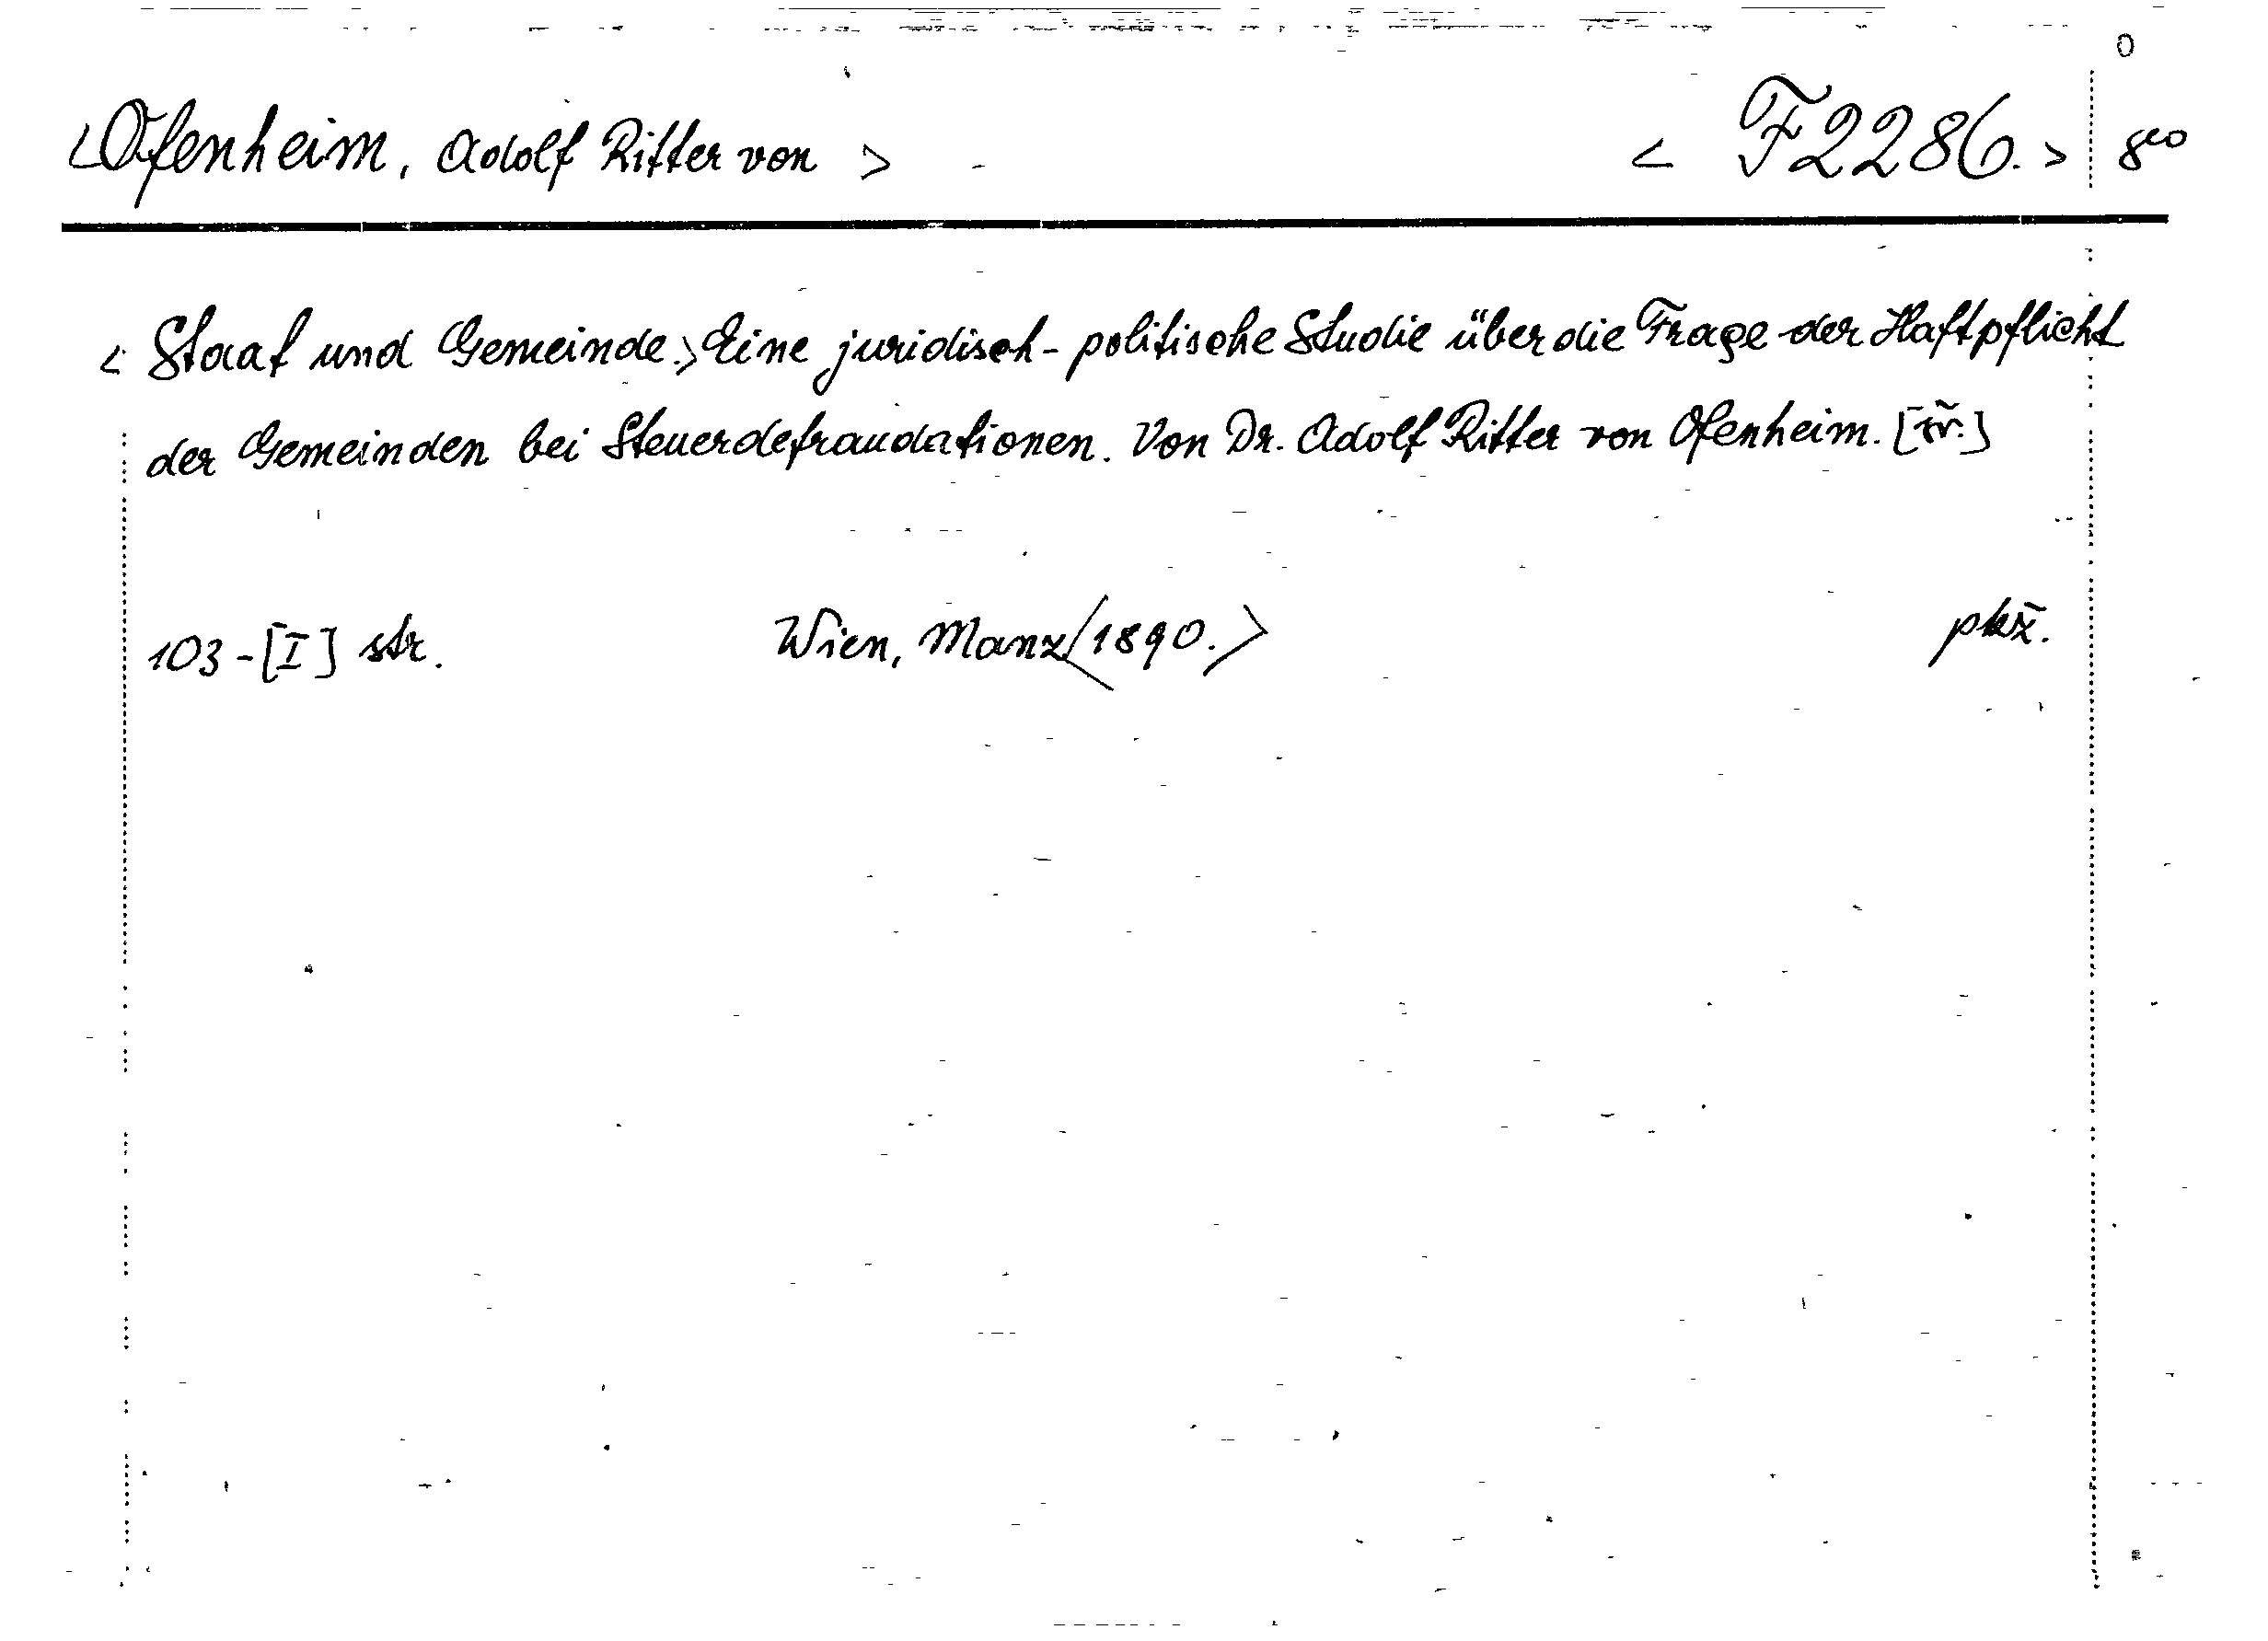 <Ofenheim, Adolf Ritter von > < F2286. > 8⁰
< Staat und Gemeinde.> Eine juridisch-politische Studie über die Frage der Haftpflicht
der Gemeinden bei Steuerdefraudationen. Von Dr. Adolf Ritter von Ofenheim.
103-[I] str. Wien, Manz <1890.>